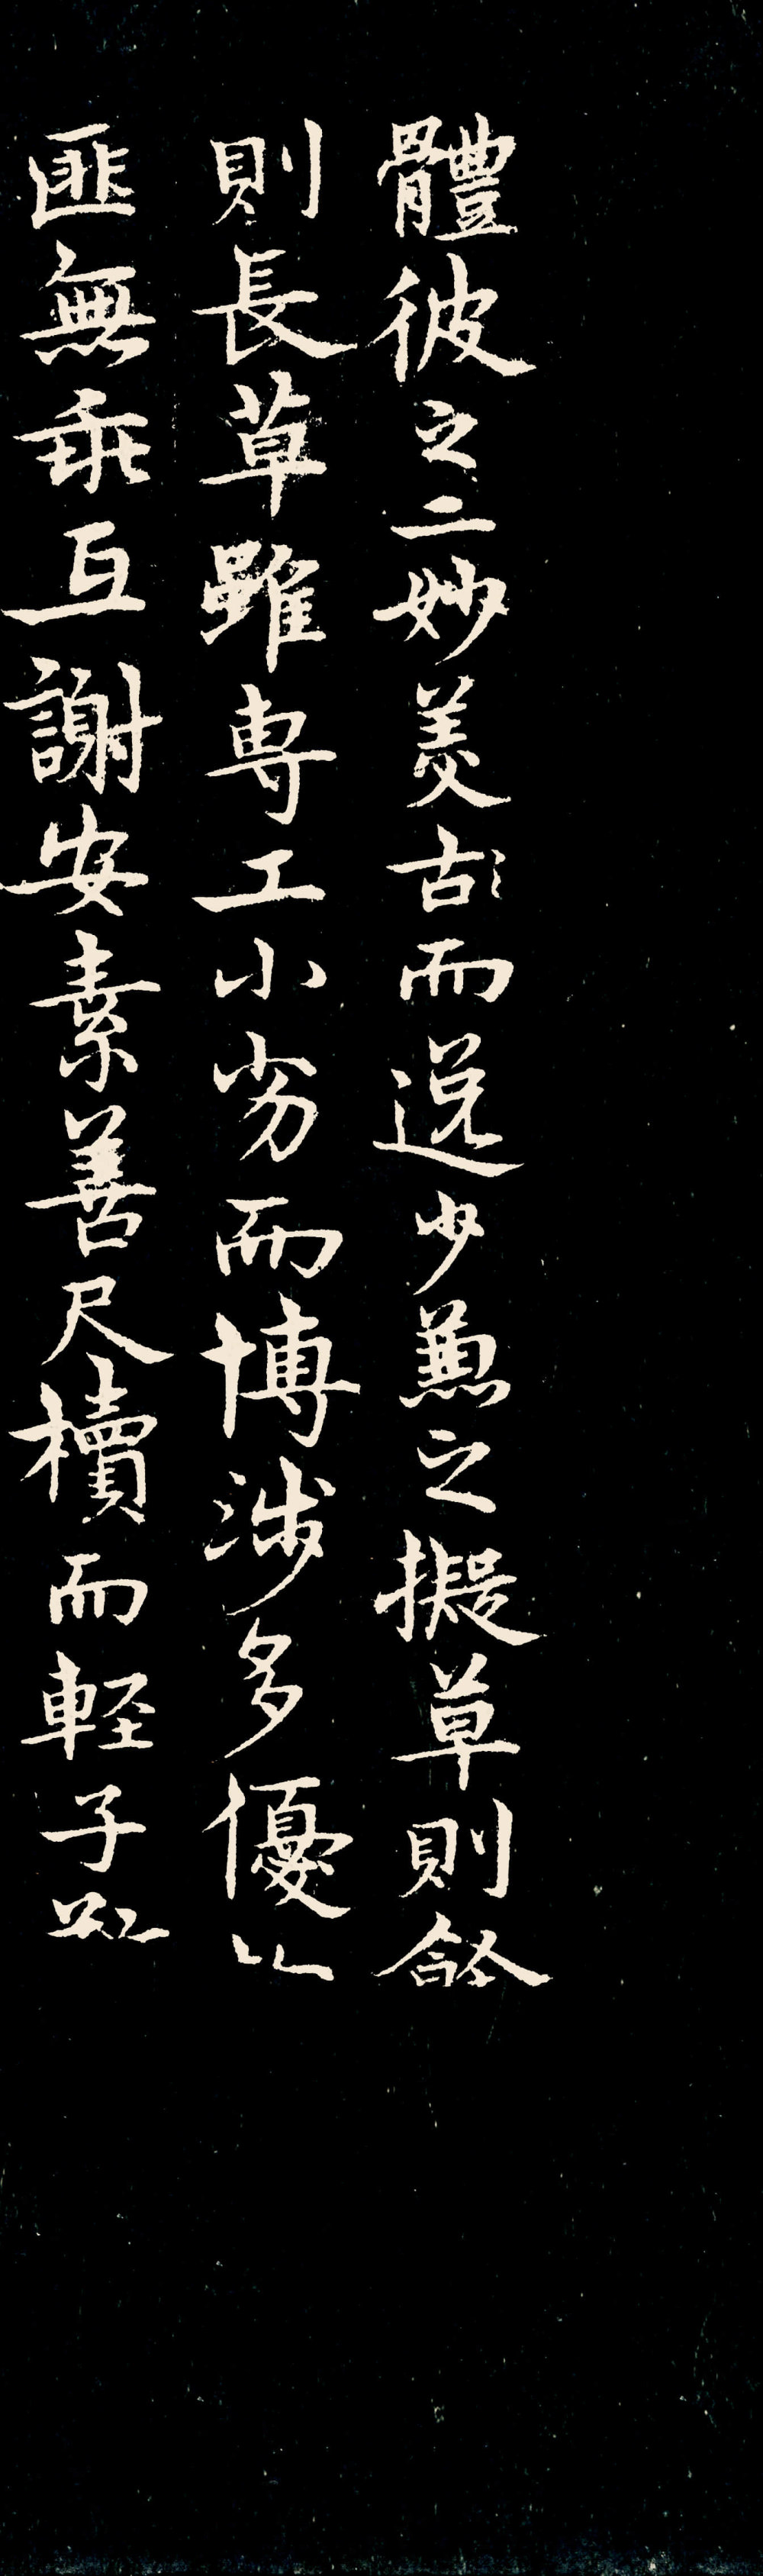 體彼之二妙美古而逸少兼之擬草則
則長草雖專工小劣而博涉多優
匪無乖互謝安素善尺牘而輕子